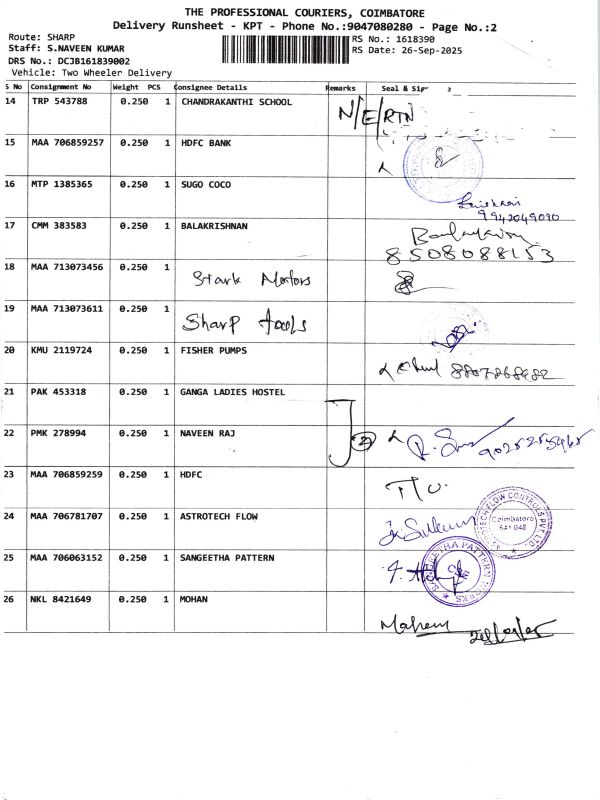 THE PROFESSIONAL COURIERS, COIMBATORE
Delivery Runsheet - KPT - Phone No.:9047080280 - Page No.:2
Route: SHARP
RS No.: 1618390
Staff: S.NAVEEN KUMAR
RS Date: 26-Sep-2025
DRS No.: DCJB161839002
Vehicle: Two Wheeler Delivery
S No Consignment No Weight PCS Consignee Details Remarks Seal &
14 TRP 543788 0.250 1 CHANDRAKANTHI SCHOOL N/E/RTN
15 MAA 706859257 0.250 1 HDFC BANK
16 MTP 1385365 0.250 1 SUGO COCO
9942049090
17 CMM 383583 0.250 1 BALAKRISHNAN
8508088153
18 MAA 713073456 0.250 1 Stark Motors
19 MAA 713073611 0.250 1 Sharp tools
20 KMU 2119724 0.250 1 FISHER PUMPS
21 PAK 453318 0.250 1 GANGA LADIES HOSTEL
22 PMK 278994 0.250 1 NAVEEN RAJ 2
23 MAA 706859259 0.250 1 HDFC
24 MAA 706781707 0.250 1 ASTROTECH FLOW
FLOW CONTROLS PVT LTD
Coimbatore
641 048
25 MAA 706063152 0.250 1 SANGEETHA PATTERN
SANGEETHA PATTERN WORKS
CBE
26 NKL 8421649 0.250 1 MOHAN